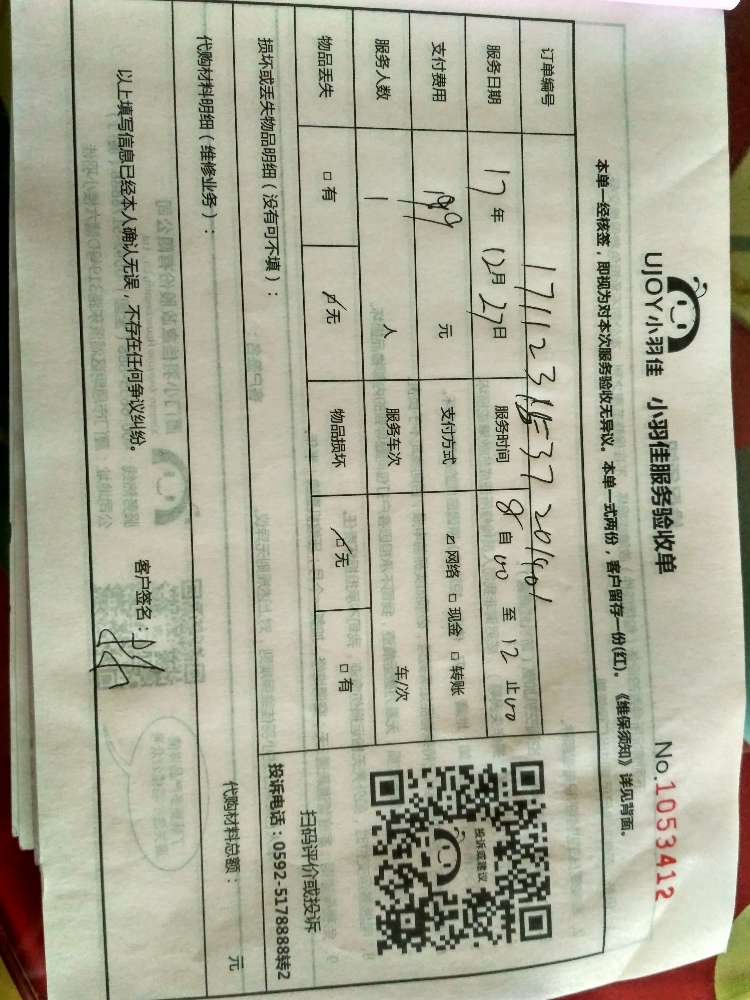 UJOY小羽佳 小羽佳服务验收单 No.1053412
本单一经核签，即视为对本次服务验收无异议。本单一式两份，客户留存一份(红)。《维保须知》详见背面。
订单编号
服务日期 17年 12月 27日 服务时间 8自00 至 12止00
支付费用 199 元 支付方式 ☑网络 □现金 □转账
服务人数 1 人 服务车次 车/次
物品丢失 □有 ☑无 物品损坏 ☑无 □有
投诉或建议
扫码评价或投诉
投诉电话：0592-5178888转2
损坏或丢失物品明细（没有可不填）：
代购材料明细（维修业务）： 代购材料总额： 元
以上填写信息已经本人确认无误，不存在任何争议纠纷。 客户签名：